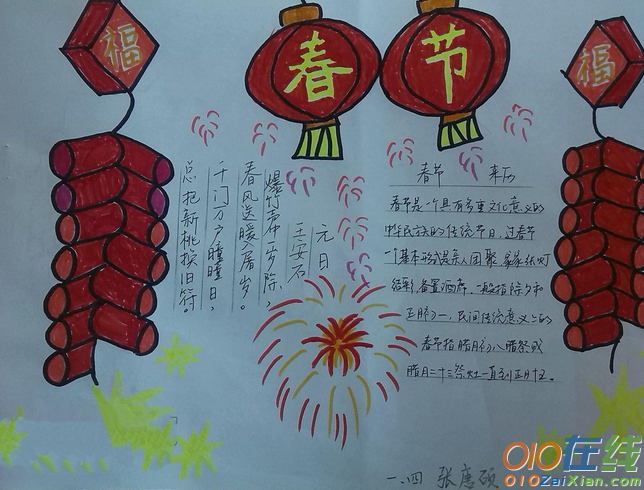 福
春节
福
元日
王安石
爆竹声中一岁除，
春风送暖入屠苏。
千门万户曈曈日，
总把新桃换旧符。
春节 来历
春节是一个具有多重文化意义的
中华民族的传统节日，过春节
一个基本形式是亲人团聚，家家张灯
结彩，备置酒席。一般指除夕和
正月初一，民间传统意义上的
春节指腊月初八腊祭或
腊月二十三祭灶一直到正月十五。
一、四 张惠硕
010在线
010ZaiXian.com